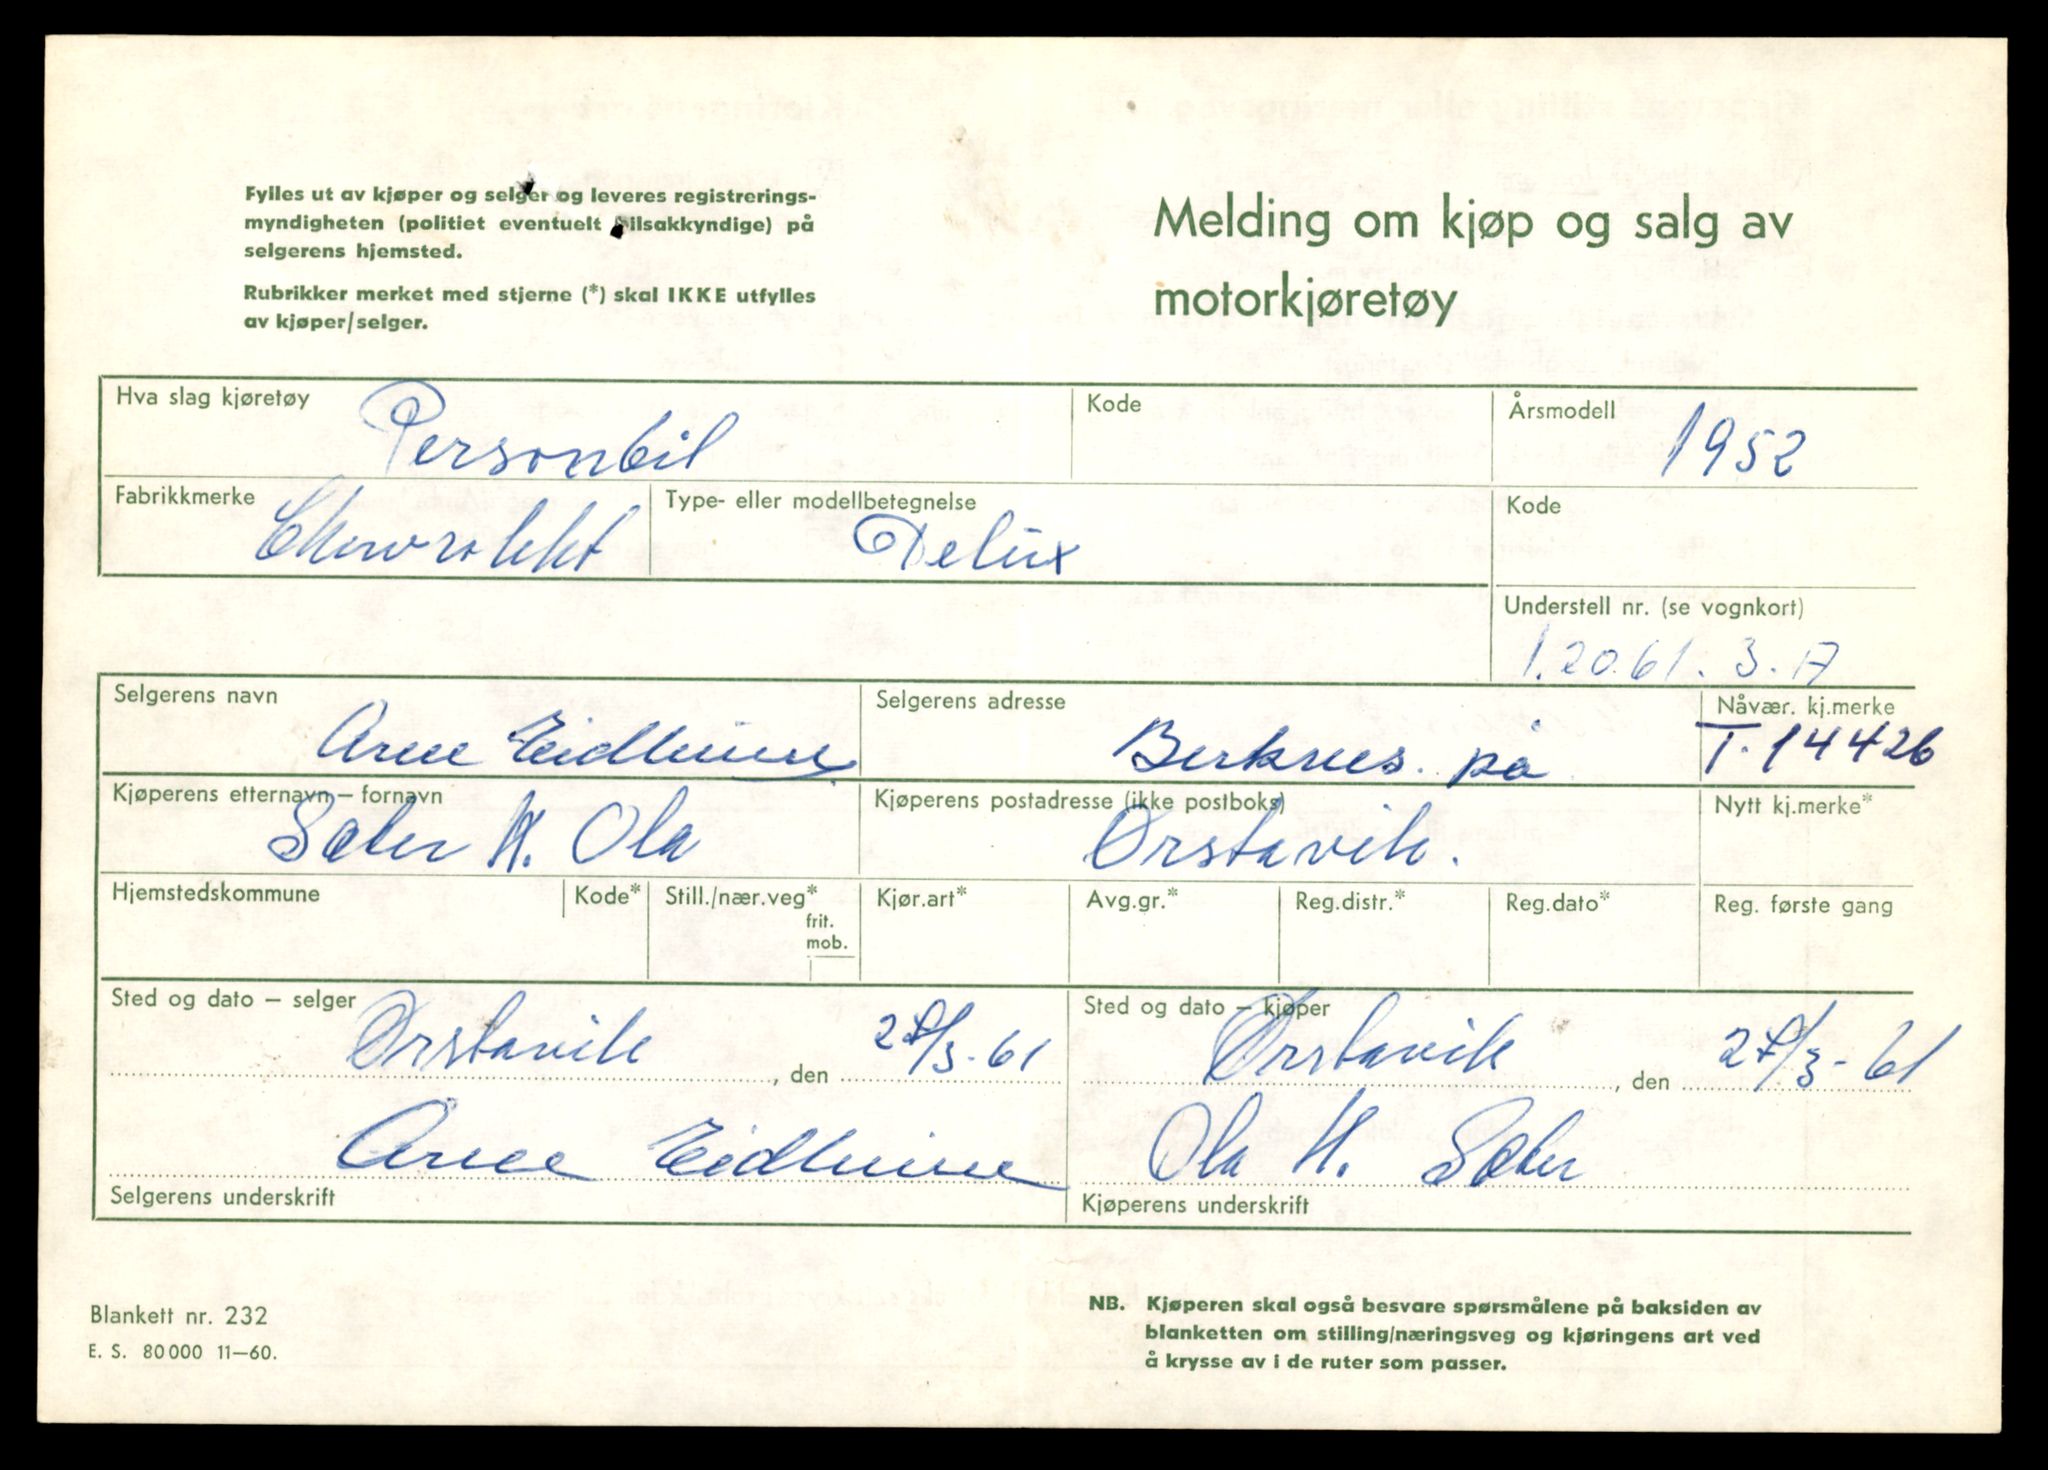 Fylles ut av kjøper og selger og leveres registrerings-
myndigheten (politiet eventuelt bilsakkyndige) på
selgerens hjemsted.
Rubrikker merket med stjerne (*) skal IKKE utfylles
av kjøper/selger.
Melding om kjøp og salg av
motorkjøretøy
Hva slag kjøretøy Personbil
Kode
Årsmodell 1952
Fabrikkmerke
Type- eller modellbetegnelse Delux
Kode
Understell nr. (se vognkort)
1.20.61.3.A
Selgerens navn Arne
Selgerens adresse på
Nåvær. kj.merke T. 14426
Kjøperens etternavn – fornavn Sæter H. Ola
Kjøperens postadresse (ikke postboks) Ørstavik.
Nytt kj.merke*
Hjemstedskommune
Kode*
Still./nær.veg*
frit.
mob.
Kjør.art*
Avg.gr.*
Reg.distr.*
Reg.dato*
Reg. første gang
Sted og dato – selger
Ørstavik, den /3-61
Sted og dato – kjøper
Ørstavik, den /3-61
Arne
Selgerens underskrift
Ola H. Sæter
Kjøperens underskrift
Blankett nr. 232
E. S. 80 000 11–60.
NB. Kjøperen skal også besvare spørsmålene på baksiden av
blanketten om stilling/næringsveg og kjøringens art ved
å krysse av i de ruter som passer.